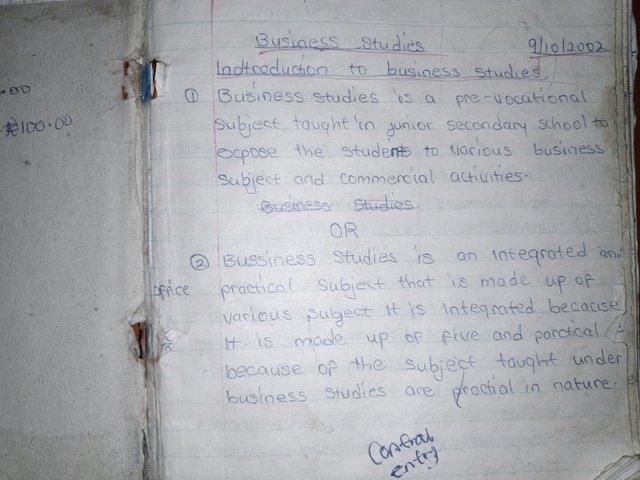 .00
₦100.00
Business Studies 9/10/2002
Indtroduction to business studies
① Business studies is a pre-vocational
subject taught in junior secondary school to
expose the students to various business
subject and commercial activities.
Business Studies
OR
② Bussiness Studies is an integrated and
office practical subject that is made up of
various subject It is integrated because
It is made up of five and parctical
because of the subject taught under
business studies are practial in nature.
Contral
entry